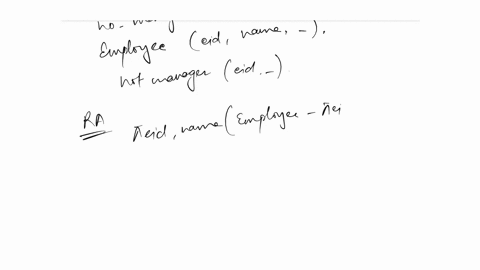 Employee (eid, name, _),
not manager (eid, _)
RA
πeid, name (Employee - πei